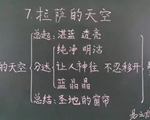 7.拉萨的天空
总起:湛蓝 透亮
纯净 明洁
的天空 分述 让人神往 不忍移开
蓝晶晶
总结:圣地的窗帘